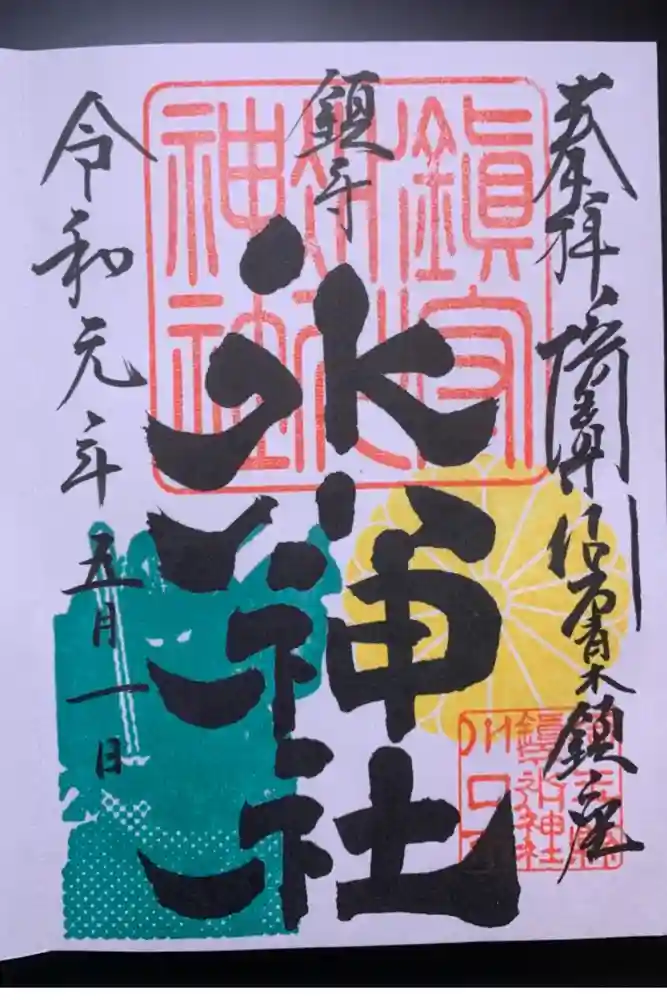 奉拝
青木鎮座
鎮守
氷川神社
令和元年五月一日
鎮守
氷川
神社
鎮守氷川神社
川口市